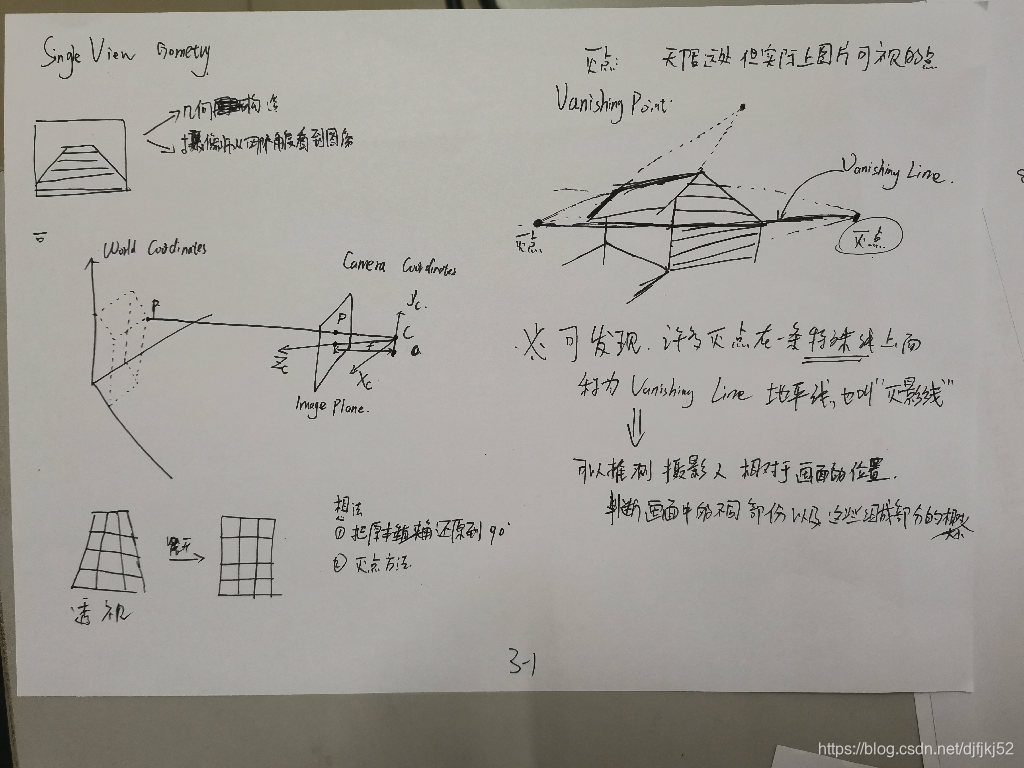 Single View Gometry
几何 构造
摄像师从何种角度看到图像
World Coordinates
P
Camera Coordinates
P
yc
C
f
a
Zc
Xc
Image Plane.
透视
展开
想法
① 把原本锐角还原到90°
② 灭点方法
灭点: 无限远处 但实际上图片可视的点
Vanishing Point:
Vanishing Line.
灭点
灭点
※ 可发现. 许多灭点在一条特殊线上面
称为 Vanishing Line 地平线, 也叫"灭影线"
可以推测 摄影人 相对于画面的位置.
判断画面中的不同部份以及 这些组成部分的
3-1
https://blog.csdn.net/djfjkj52